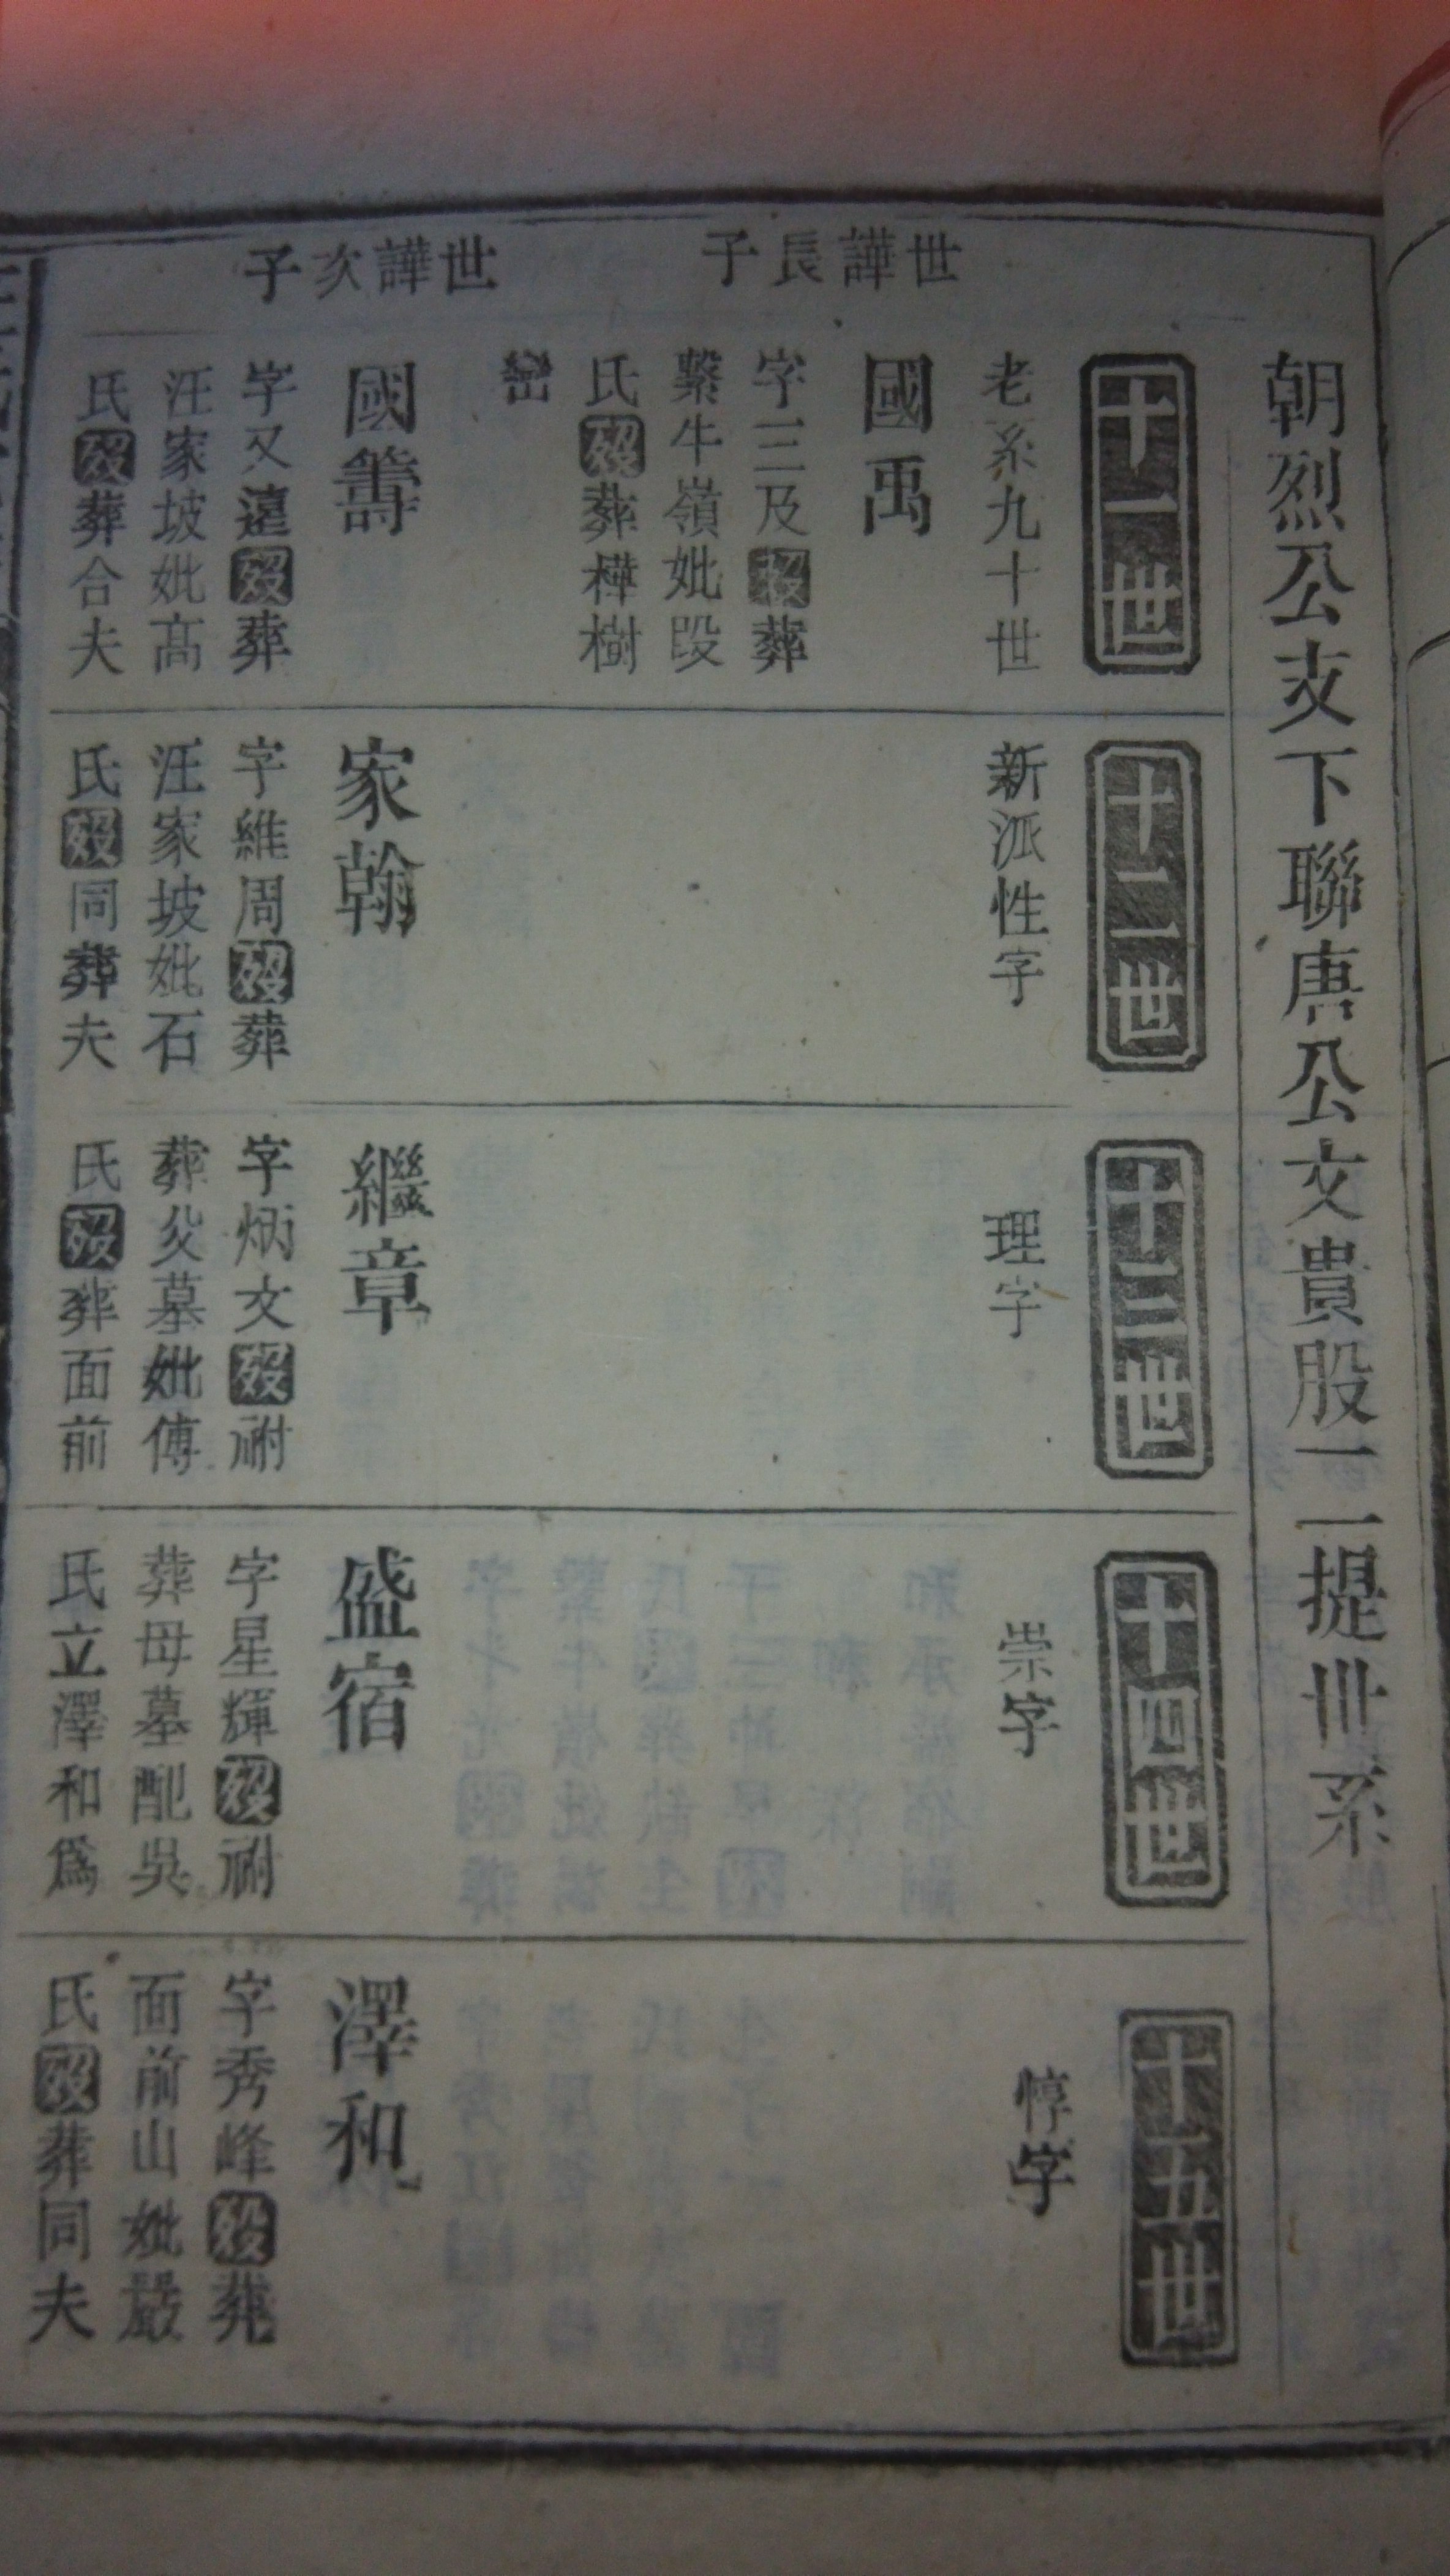 朝烈公支下聯唐公文貴股一二提世系
十一世
老系九十世
世譁長子
國禹
字三及歿葬
繫牛嶺妣段
氏歿葬樺樹
世譁次子
國籌
字又遠歿葬
汪家坡妣高
氏歿葬合夫
十二世
新派性字
家翰
字維周歿葬
汪家坡妣石
氏歿同葬夫
十三世
理字
繼章
字炳文歿祔
葬父墓妣傅
氏歿葬面前
十四世
崇字
盛宿
字星輝歿祔
葬母墓配吳
氏立澤和爲
十五世
惇字
澤和
字秀峰歿葬
面前山妣嚴
氏歿葬同夫